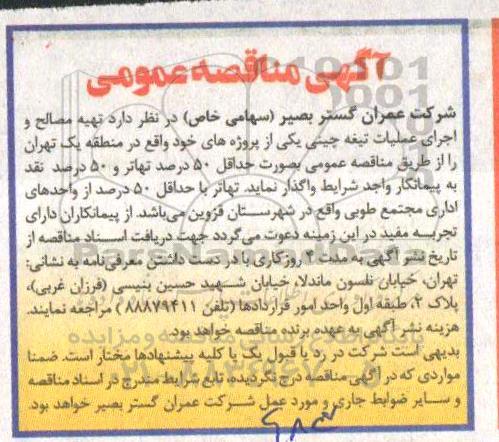 آگهی مناقصه عمومی
شرکت عمران گستر بصیر (سهامی خاص) در نظر دارد تهیه مصالح و
اجرای عملیات تیغه چینی یکی از پروژه های خود واقع در منطقه یک تهران
را از طریق مناقصه عمومی بصورت حداقل ۵۰ درصد تهاتر و ۵۰ درصد نقد
به پیمانکار واجد شرایط واگذار نماید. تهاتر با حداقل ۵۰ درصد از واحدهای
اداری مجتمع طوبی واقع در شهرستان قزوین می‌باشد. از پیمانکاران دارای
تجربه مفید در این زمینه دعوت می‌گردد جهت دریافت اسناد مناقصه از
تاریخ نشر آگهی به مدت ۴ روزکاری با در دست داشتن معرفی‌نامه به نشانی:
تهران، خیابان نلسون ماندلا، خیابان شهید حسین بنیسی (فرزان غربی)،
پلاک ۲، طبقه اول واحد امور قراردادها (تلفن ۸۸۸۷۹۴۱۱) مراجعه نمایند.
هزینه نشر آگهی به عهده برنده مناقصه خواهد بود.
بدیهی است شرکت در رد یا قبول یک یا کلیه پیشنهادها مختار است. ضمنا
مواردی که در آگهی مناقصه درج نگردیده، تابع شرایط مندرج در اسناد مناقصه
و سایر ضوابط جاری و مورد عمل شرکت عمران گستر بصیر خواهد بود.